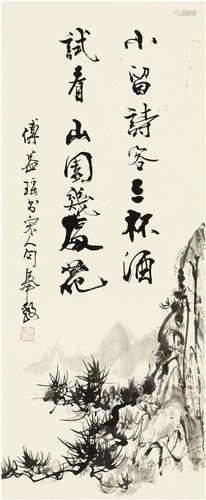 小留詩客三杯酒
試看山園幾處花
傅益瑤書宋人句奉